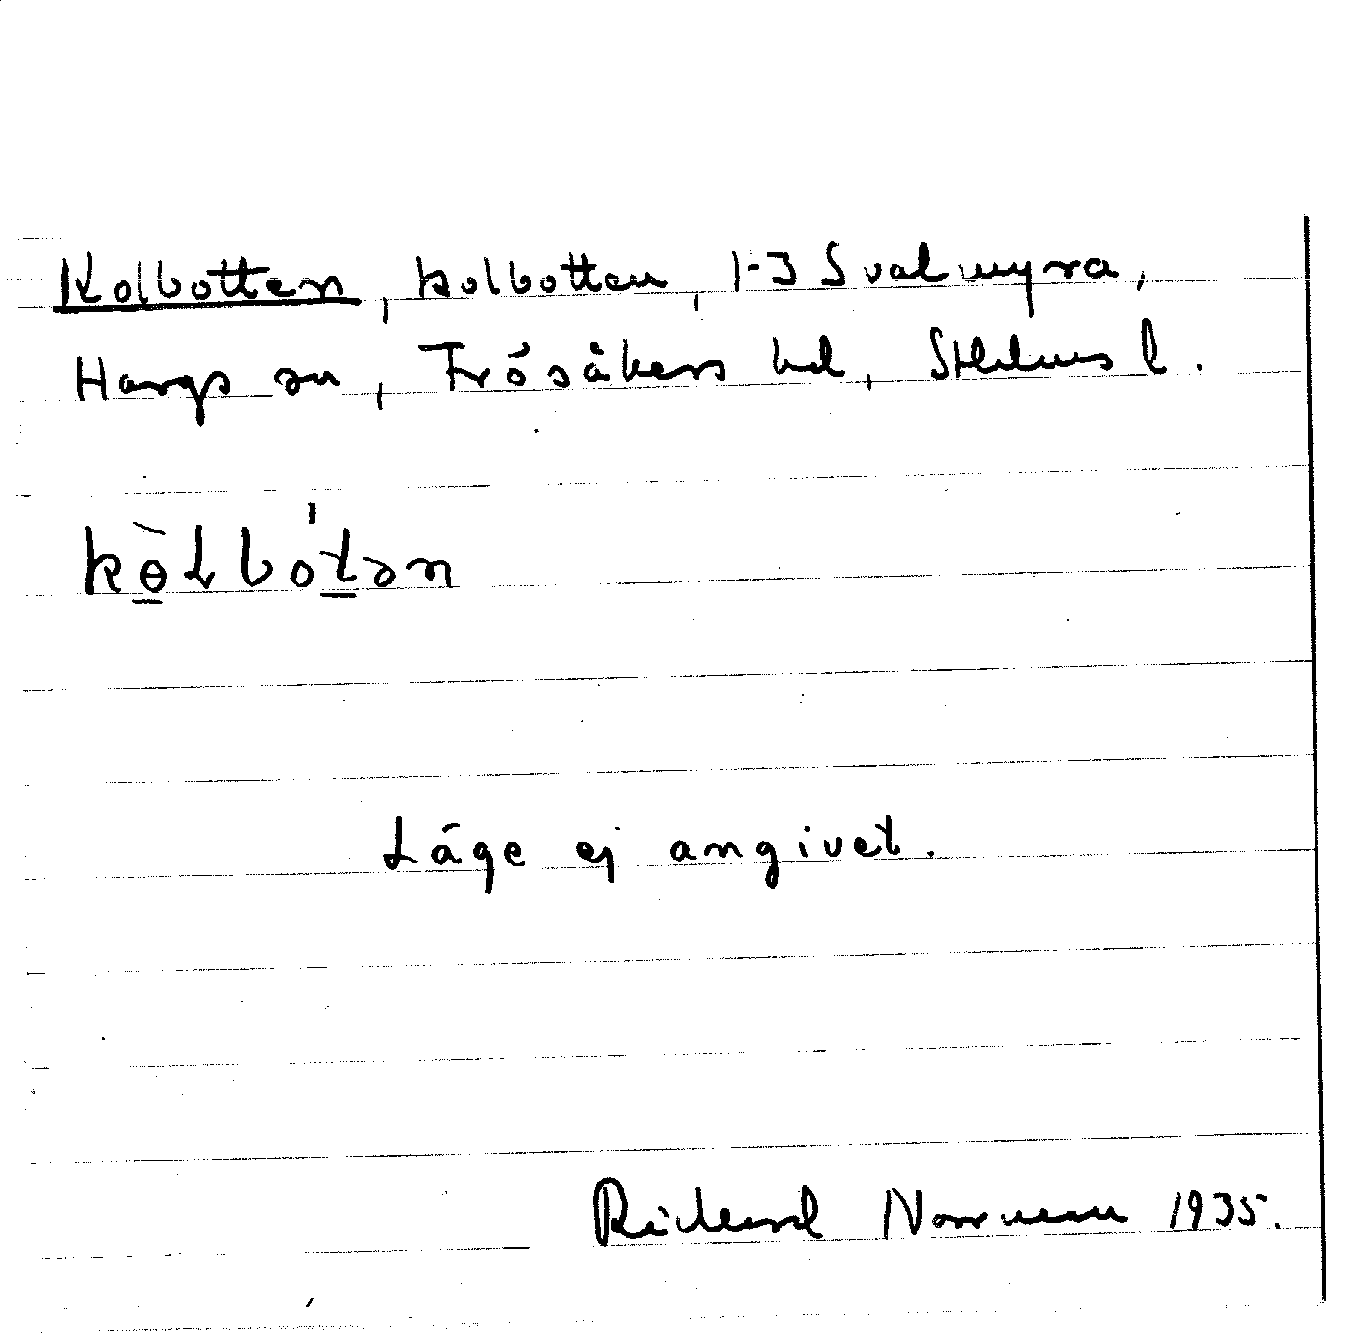 Kolbotten, kolbotten, 1-3 Svalmyra,
Hargs sn, Frösåkers hd, Sthlms l.
kɵ̀lbo'tən
Läge ej angivet.
Rickard Norrman 1935.